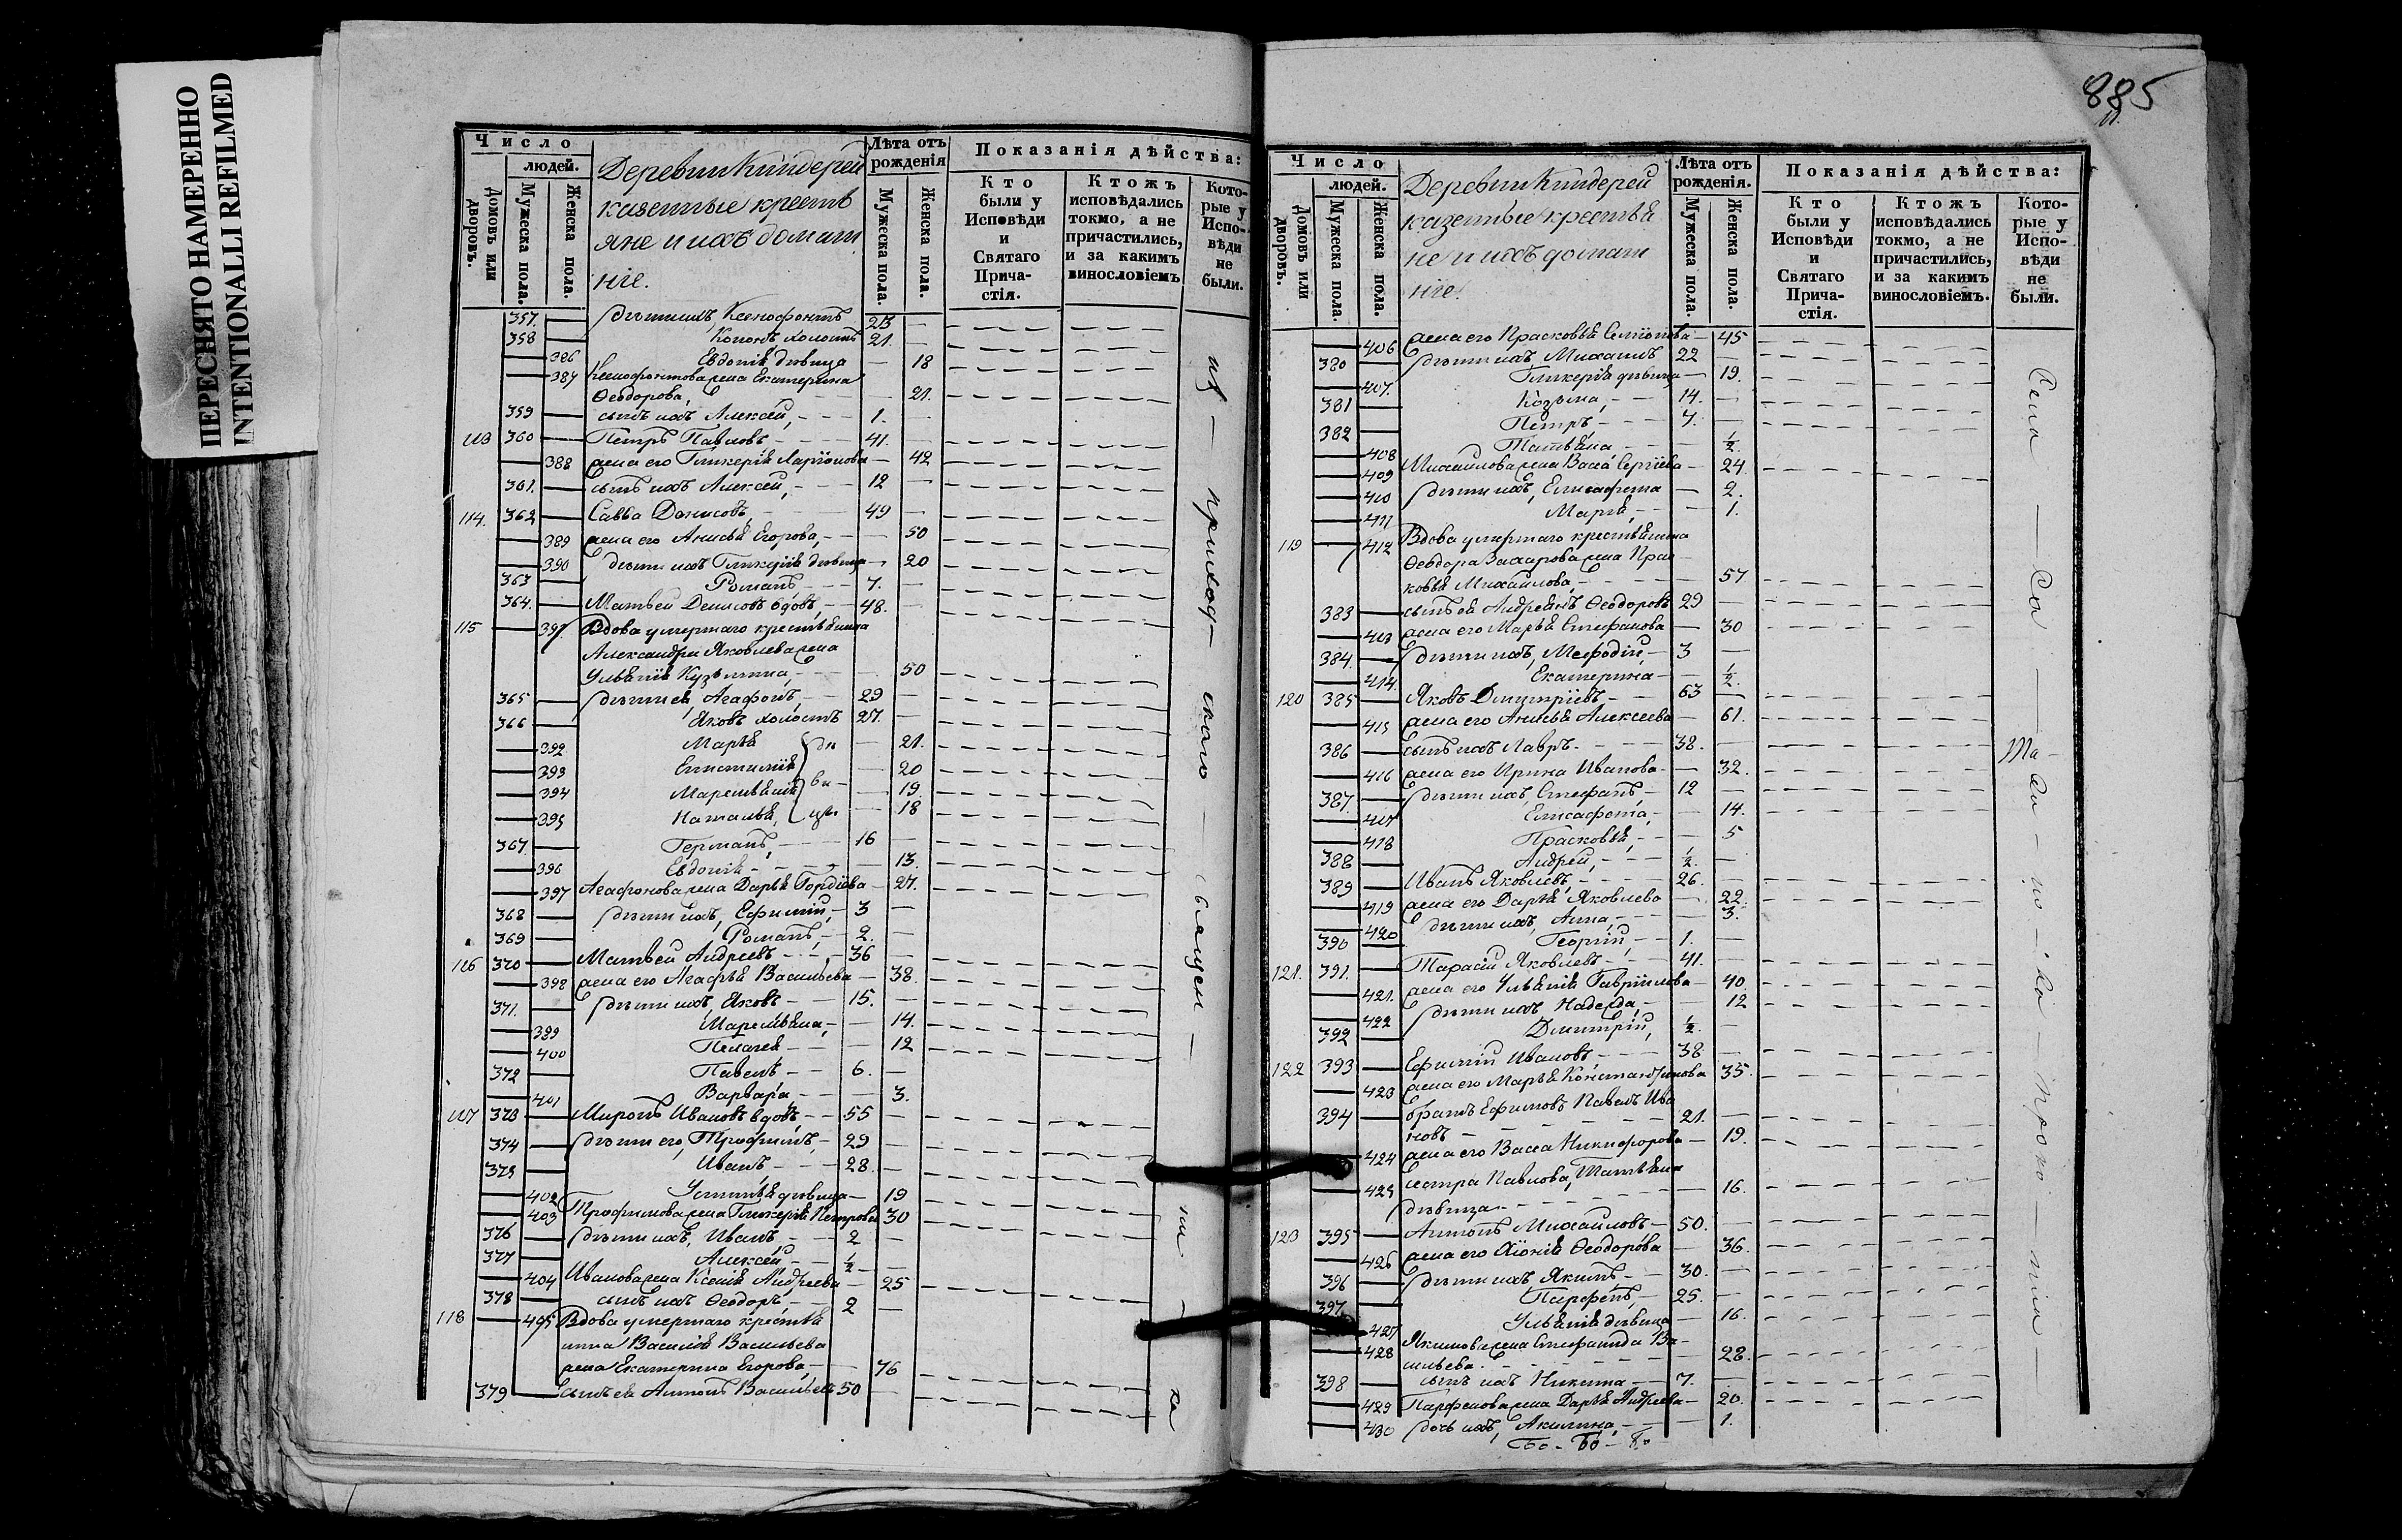 ПЕРЕСНЯТО НАМЕРЕННО
INTENTIONALLI REFILMED
885
Число
людей.
Домовъ или дворовъ.
Мужеска пола.
Женска пола.
Деревни Киндерей
казенные крестья
яне и ихъ домаш
ніе.
Лѣта отъ рожденія
Мужеска пола.
Женска пола.
Показанія дѣйства:
Кто были у Исповѣди и Святаго Прича-стія.
Ктожъ исповѣдались токмо, а не причастились, и за какимъ винословіемъ
Кото-рые у Испо-вѣди не были.
357. дѣти ихъ, Ксенофонтъ 23
358 Кононъ холостъ 21.
386 Евдокія дѣвица 18
387 Ксенофонтова жена Екатерина
Ѳеодорова, 21.
359 сынъ ихъ Алексей, 1.
113 360 Петръ Павловъ 41.
388 жена его Гликерія Ларіонова 42
361. сынъ ихъ Алексей, 12
114. 362 Савва Денисовъ, 49
389 жена его Анисья Егорова, 50
390 дѣти ихъ Гликерія дѣвица 20
363 Романъ 7.
364. Матвей Денисовъ вдовъ, 48.
115 391 Вдова умершаго крестьянина
Александра Яковлева жена
Ульянія Кузьмина, 50
365 дѣти ея, Агафонъ, 29
366 Яковъ холостъ 27.
392 Марья 21.
393 Епистимія 20
394 Маремьянія 19.
395 Наталья, 18
дѣ
ви-
цы.
367. Германъ, 16
396 Евдокія 13.
397 Агафонова жена Дарья Гордіева 27.
368 дѣти ихъ, Ефимій, 3
369 Романъ, 2.
116 370 Матвей Андреевъ 36
398 жена его Агафья Васильева 38.
371. дѣти ихъ, Яковъ 15.
399 Маремьяна, 14.
400 Пелагея 12
372 Павелъ 6.
401 Варвара 3.
117 373 Миронъ Ивановъ вдовъ 55
374 дѣти его, Трофимъ, 29
375 Иванъ 28.
402 Устинья дѣвица 19
403 Трофимова жена Гликерія Петрова 30
376 дѣти ихъ, Иванъ 2
377 Алексей 1/2
404 Иванова жена Ксенія Андреева 25
378 сынъ ихъ Ѳеодоръ, 2
118 405 Вдова умершаго крестья
нина Василія Васильева
жена Екатерина Егорова, 76
379 Сынъ ея Антонъ Васильевъ 50
Число
людей.
Домовъ или дворовъ.
Мужеска пола.
Женска пола.
Деревни Киндерей
казенные крестья
не и ихъ домаш
ніе.
Лѣта отъ рожденія.
Мужеска пола.
Женска пола.
Показанія дѣйства:
Кто были у Исповѣди и Святаго Прича-стія.
Ктожъ исповѣдались токмо, а не причастились, и за какимъ винословіемъ.
Кото-рые у Испо-вѣди не были.
406 жена его Прасковья Семіонова 45
380 дѣти ихъ, Михаилъ 22
407. Гликерія дѣвица 19.
381 Козьма, 14.
382 Петръ 7.
408 Татьяна 1/2
409 Михаилова жена Васса Сергіева 24
410 дѣти ихъ, Елисафета 2.
411 Марья, 1.
119 412 Вдова умершаго крестьянина
Ѳеодора Захарова жена Прас
ковья Михаилова, 57
383 сынъ ея Андреянъ Ѳеодоровъ 29
413 жена его Марья Стефанова 30
384. дѣти ихъ, Меѳодій, 3
414. Екатерина 1/2.
120 385 Яковъ Дмитріевъ 63
415 жена его Анисья Алексеева 61.
386 сынъ ихъ Лавръ. 38.
416 жена его Ирина Иванова 32.
387. дѣти ихъ, Стефанъ, 12
417 Елисафета, 14.
418 Прасковья, 5
388 Андрей, 1/2.
389 Иванъ Яковлевъ, 26.
419 жена его Дарья Яковлева 22.
420 дѣти ихъ, Анна, 3.
390 Георгій, 1.
121. 391. Тарасій Яковлевъ 41.
421. жена его Ульянія Гавріилова 40.
422 дѣти ихъ Надежда, 12
392 Дмитрій, 1/2.
122 393 Ефимій Ивановъ 38
423 жена его Марья Константинова 35.
394 братъ Ефимовъ Павелъ Ива
новъ 21.
424 жена его Васса Никифорова 19.
425 сестра Павлова, Татьяна
дѣвица 16.
123 395 Антонъ Михаиловъ 50.
426 жена его Ѳіонія Ѳеодорова 36.
396 дѣти ихъ Якимъ 30.
397 Парфенъ, 25.
427 Ульянія дѣвица 16.
428 Якимова жена Стефанида Ва-
сильева. 28.
398 сынъ ихъ Никита 7.
429 Парфенова жена Дарья Андреева 20.
430 дочь ихъ, Акилина, 1.
из — приход — скаго — священ — ни — ка